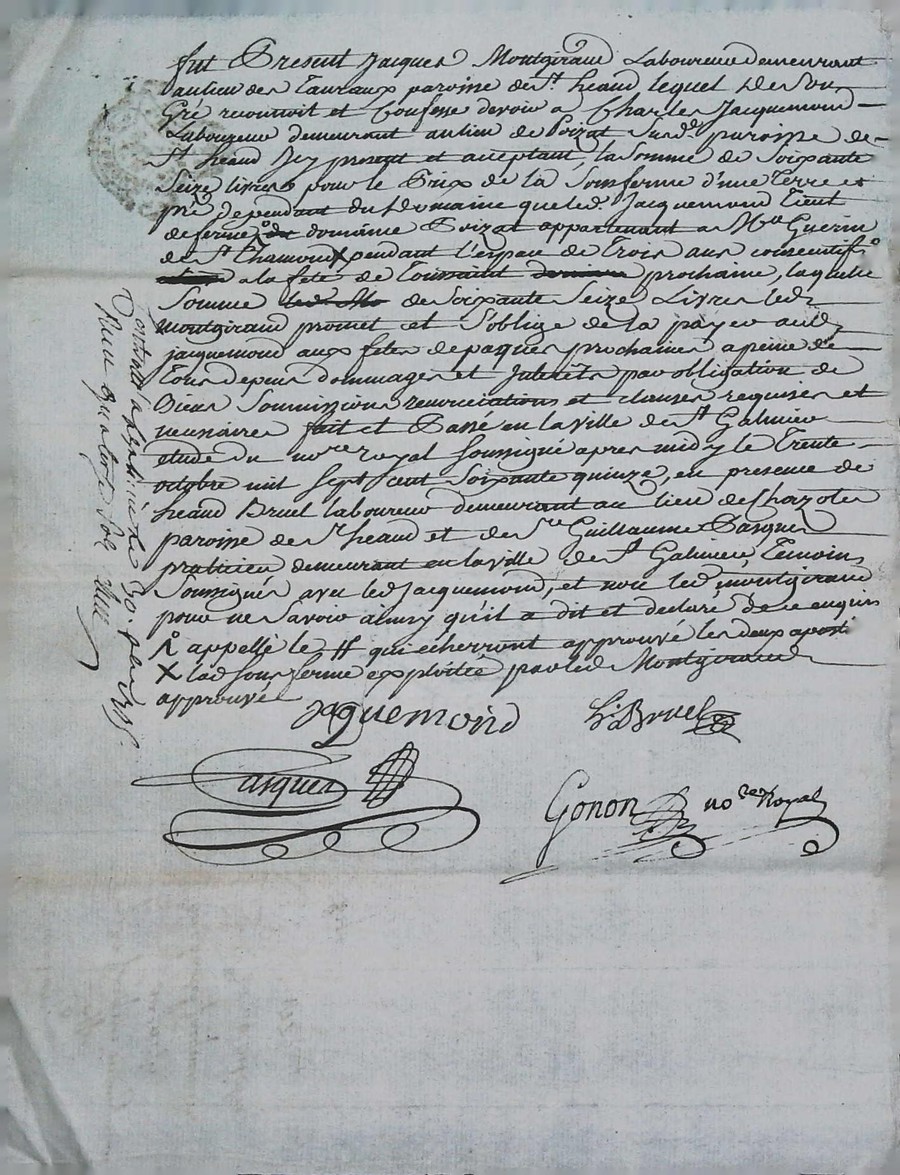 fut Present Jacques Montgirand Laboureur demeurant
au lieu des Tauraux paroisse de St. heand lequel de Son
Gré reconnoit et Confesse devoir a Charles Jacquemond
Laboureur demeurant au lieu de Poizat Susd. paroisse de
St. heand Icy present et acceptant, la Somme de Soixante
Seize livres pour le Prix de la Sousferme d'une Terre et
pré dependant du domaine que led. Jacquemond Tient
de ferme domaine Poizat appartenant a Guerin
de St. Chamond X pendant l'espace de Trois ans consecutifs
a la fete de Toussaint prochaine, laquelle
Somme de Soixante Seize Livres led.
montgirand promet et S'oblige de la payer aud.
jacquemond aux fetes de paques prochaines a peine de
Tous depens dommages et Interets par obligation de
Biens Soumissions renonciations et clauses requises et
necessaires fait et Passé en la ville de St. Galmier
etude du nore. royal Soussigné apres midy le Trente
octobre mil Sept Cent Soixante quinze, en presence de
heand Bruel laboureur demeurant au lieu de Chazotes
paroisse de St. heand et de Sr. Guillaume Pasquer
praticien demeurant en la ville de St. Galmier, Temoins
Soussignés avec led. Jacquemond, et non led. montgirand
pour ne Savoir ainsy qu'il a dit et declaré de ce enquis
appellé le # qui écherront approuvé les deux aposti
X lad. Sousferme exploitée par led. Montgirand
approuvé
Jaquemond
h. Bruel
Pasquer
Gonon nore. Royal
Controllé a St.
Reçu quatorze Sols